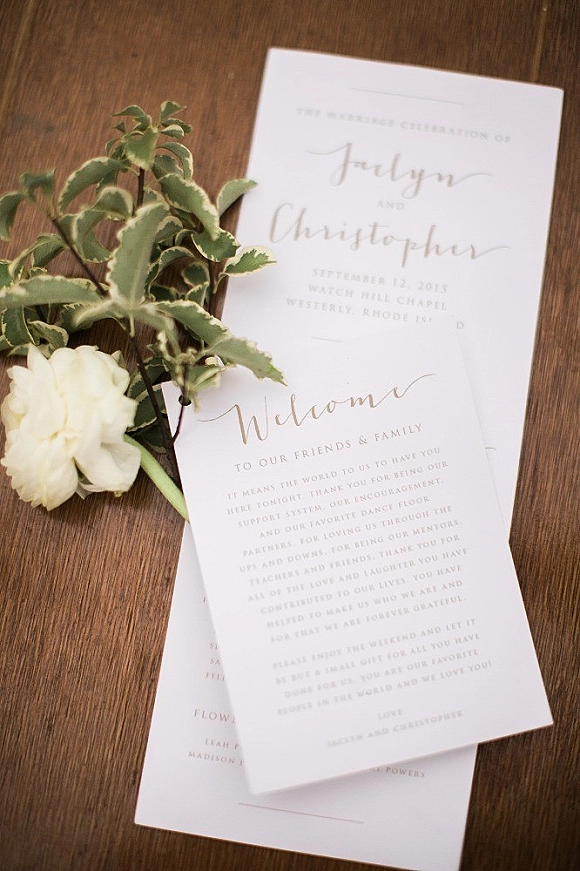 THE MARRIAGE CELEBRATION OF
Jaclyn
AND
Christopher
SEPTEMBER 12, 2015
WATCH HILL CHAPEL
WESTERLY, RHODE ISLAND
Welcome
TO OUR FRIENDS & FAMILY
IT MEANS THE WORLD TO US TO HAVE YOU
HERE TONIGHT. THANK YOU FOR BEING OUR
SUPPORT SYSTEM, OUR ENCOURAGEMENT,
AND OUR FAVORITE DANCE FLOOR
PARTNERS. FOR LOVING US THROUGH THE
UPS AND DOWNS. FOR BEING OUR MENTORS,
TEACHERS AND FRIENDS. THANK YOU FOR
ALL OF THE LOVE AND LAUGHTER YOU HAVE
CONTRIBUTED TO OUR LIVES. YOU HAVE
HELPED TO MAKE US WHO WE ARE AND
FOR THAT WE ARE FOREVER GRATEFUL.
PLEASE ENJOY THE WEEKEND AND LET IT
BE BUT A SMALL GIFT FOR ALL YOU HAVE
DONE FOR US. YOU ARE OUR FAVORITE
PEOPLE IN THE WORLD AND WE LOVE YOU!
LOVE,
JACLYN AND CHRISTOPHER
FLOW
LEAH
MADISON POWERS